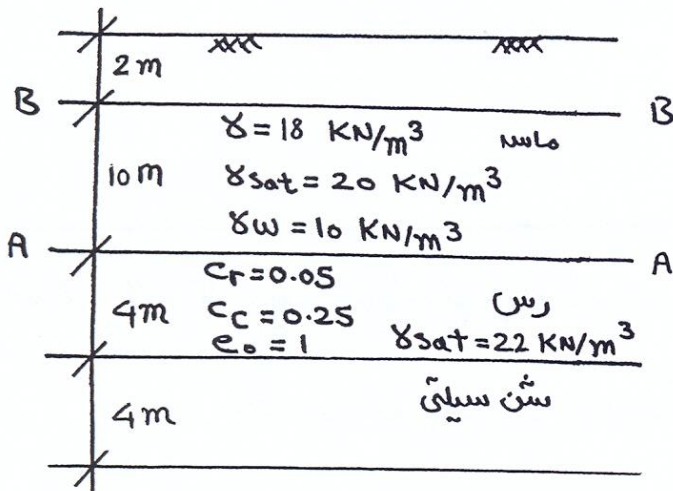 2m
B B
γ = 18 KN/m³ ماسه
10m γsat = 20 KN/m³
γw = 10 KN/m³
A A
Cr = 0.05
4m Cc = 0.25 رس
e₀ = 1 γsat = 22 KN/m³
شن سیلتی
4m